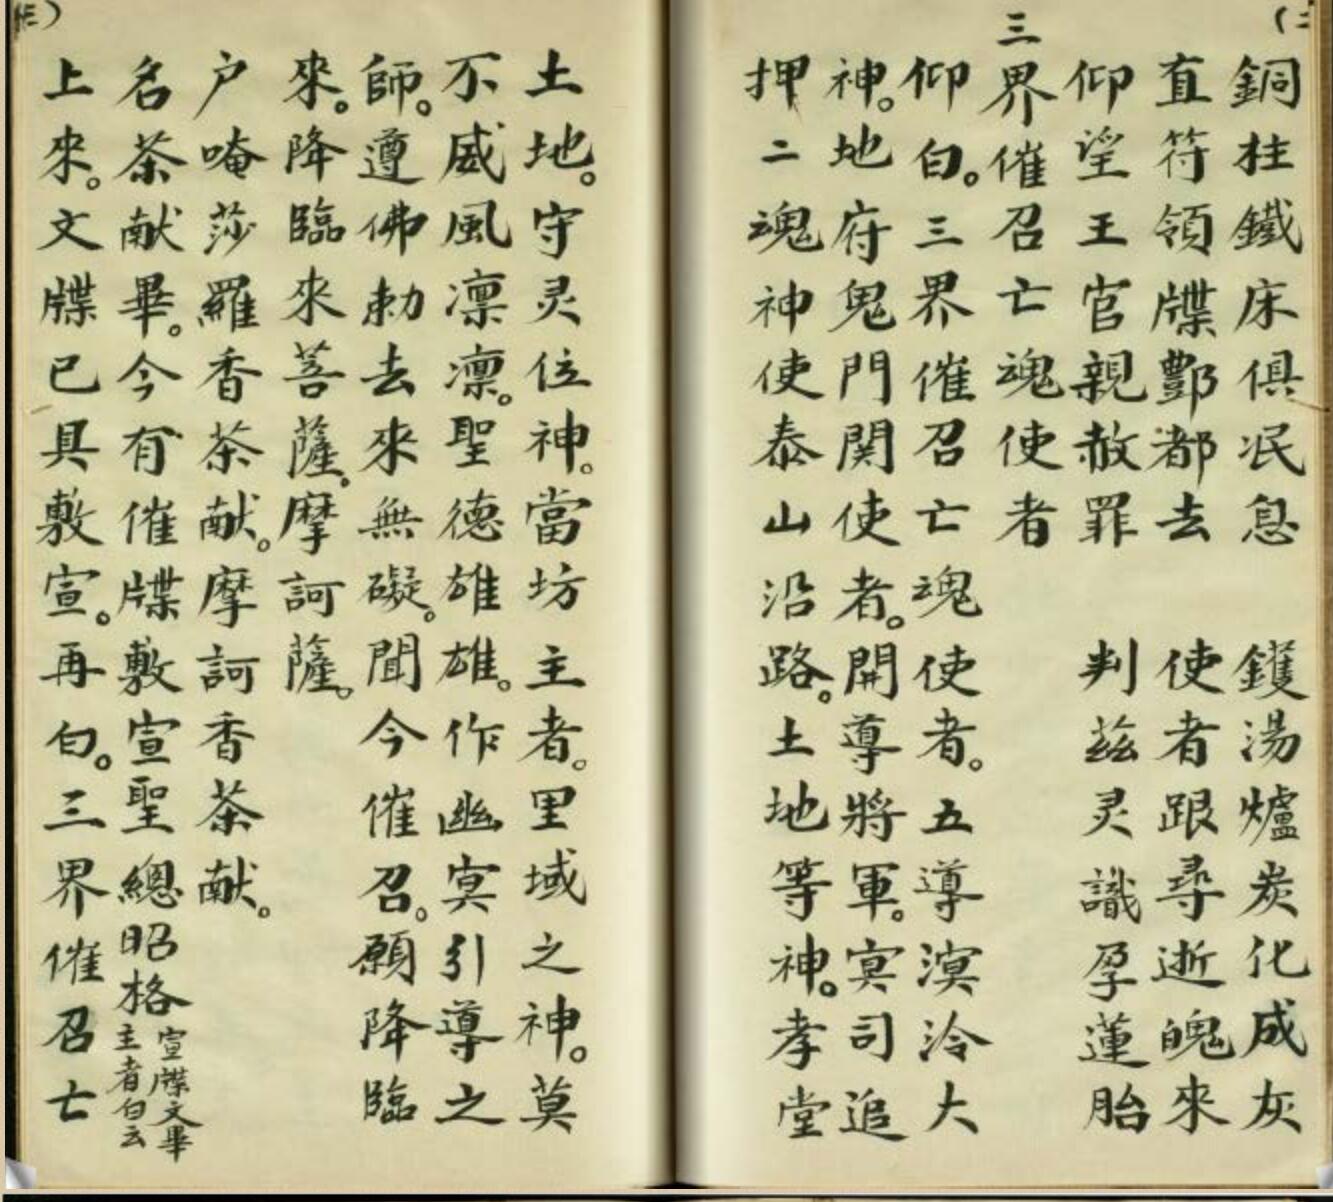 銅柱鐵床俱泯息　鑊湯爐炭化成灰
直符領牒酆都去　使者跟尋逝魄來
仰望王官親赦罪　判茲灵識孕蓮胎
三界催召亡魂使者
仰白。三界催召亡魂使者。五導溟泠大
神。地府鬼門関使者。開導將軍。冥司追
押二魂神使泰山沿路。土地等神。孝堂
土地。守灵位神。當坊主者。里域之神。莫
不威風凛凛。聖德雄雄。作幽冥引導之
師。遵佛勅去來無礙。聞今催召。願降臨
來。降臨來菩薩。摩訶薩。
户唵莎羅香茶献。摩訶香茶献。
名茶献畢。今有催牒敷宣聖總昭格宣牒文畢主者白云
上來。文牒已具敷宣。再白。三界催召亡